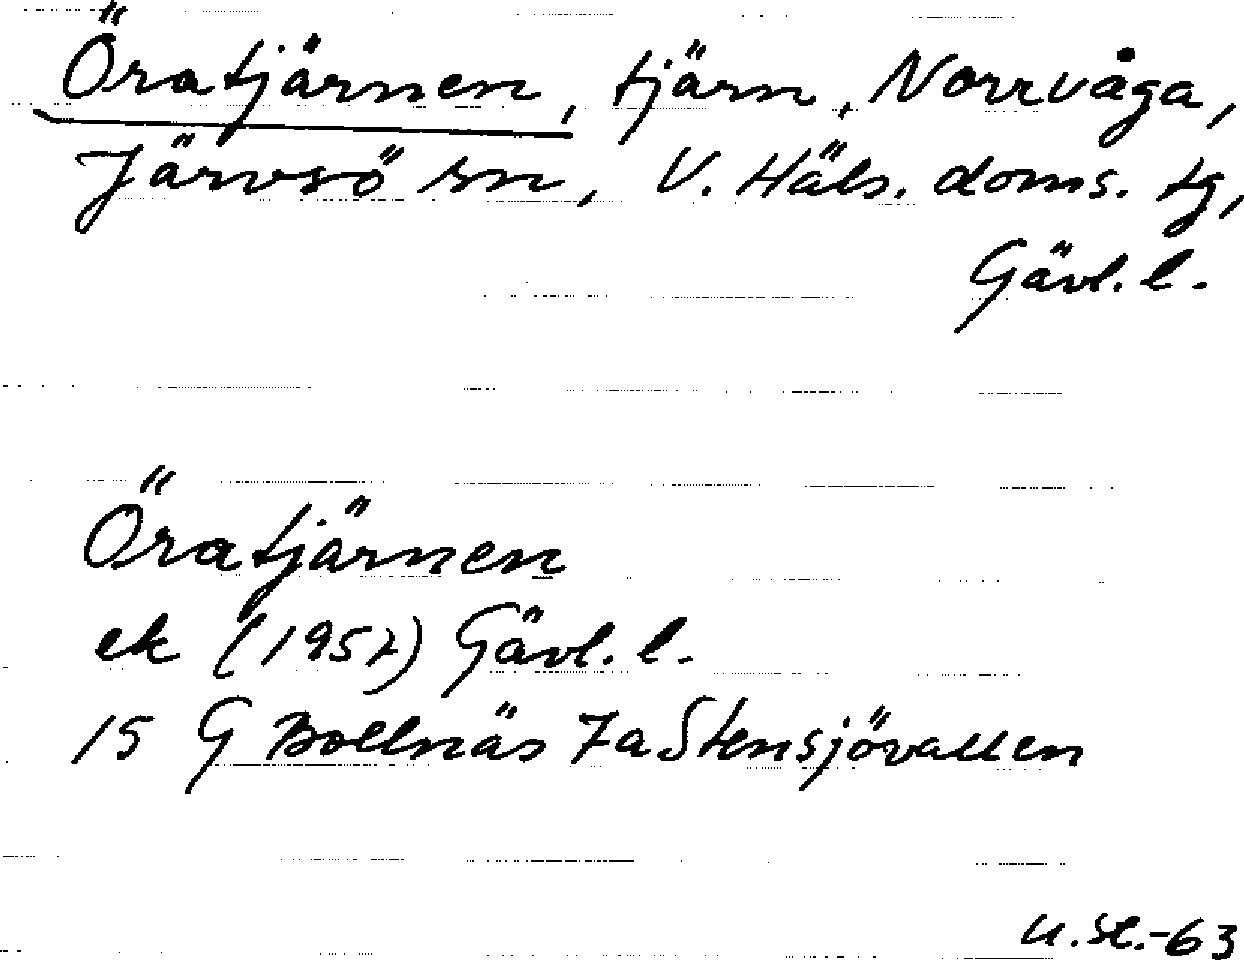 Öratjärnen, tjärn, Norrvåga,
Järvsö sn, V. Häls. doms. tg,
Gävl. l.
Öratjärnen
ek (1957) Gävl. l.
15 G Bollnäs 7a Stensjövallen
U.St.-63